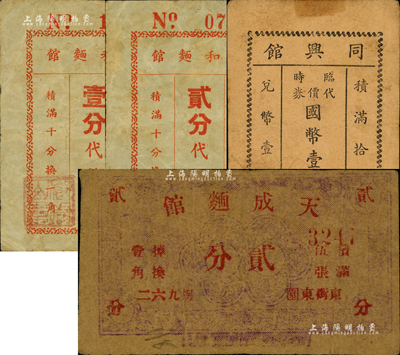 上海陽明拍賣
Nº 1
館麵和
積滿十分換一角
壹分代
Nº 07
館麵和
積滿十分
貳分代
館興同
積滿拾
臨時代價券
國幣壹
兌幣壹
上海陽明拍賣
貳 館麵成天 貳
3247
積滿伍張
掉換壹角
貳分
圍東街東
二六九
分 分
上海陽明拍賣